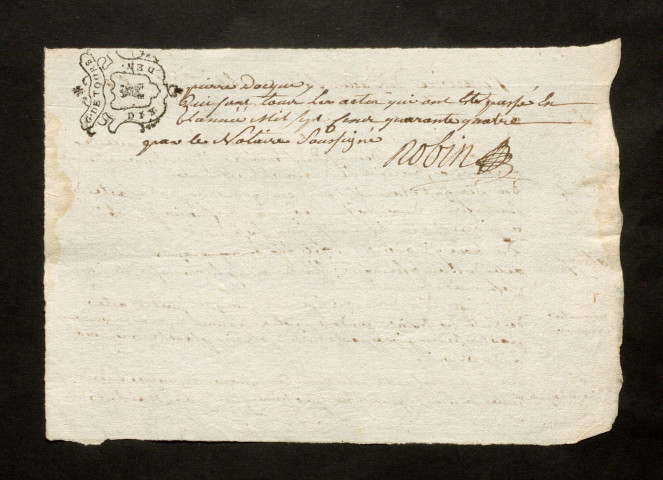 G. DE TOURS
DEN.
DIX
pierre Docque
Qui sont tous les actes qui ont été passé en
Lannée Mil sept Cens quarante quatre
par le Notaire Soussigné
Robin